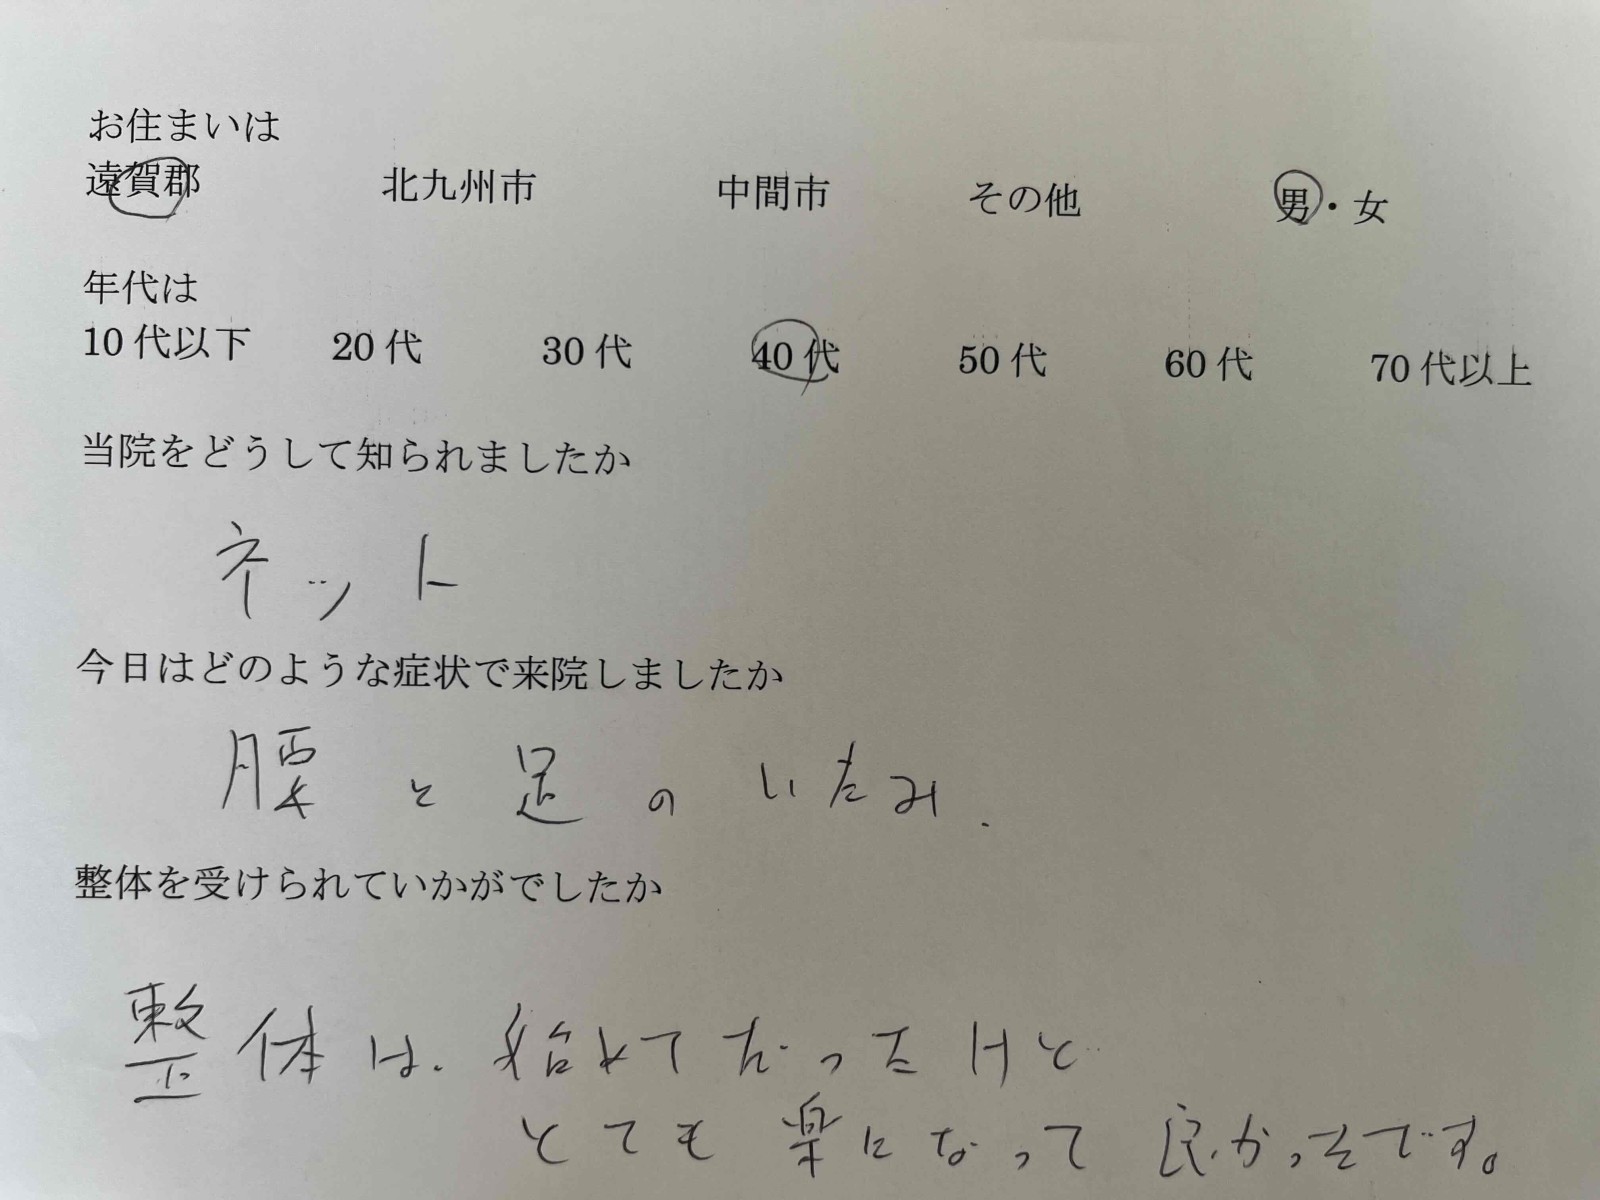 お住まいは
遠賀郡 北九州市 中間市 その他 男・女
年代は
10代以下 20代 30代 40代 50代 60代 70代以上
当院をどうして知られましたか
ネット
今日はどのような症状で来院しましたか
腰と足のいたみ.
整体を受けられていかがでしたか
整体は、始めてだったけど
とても楽になって良かったです。